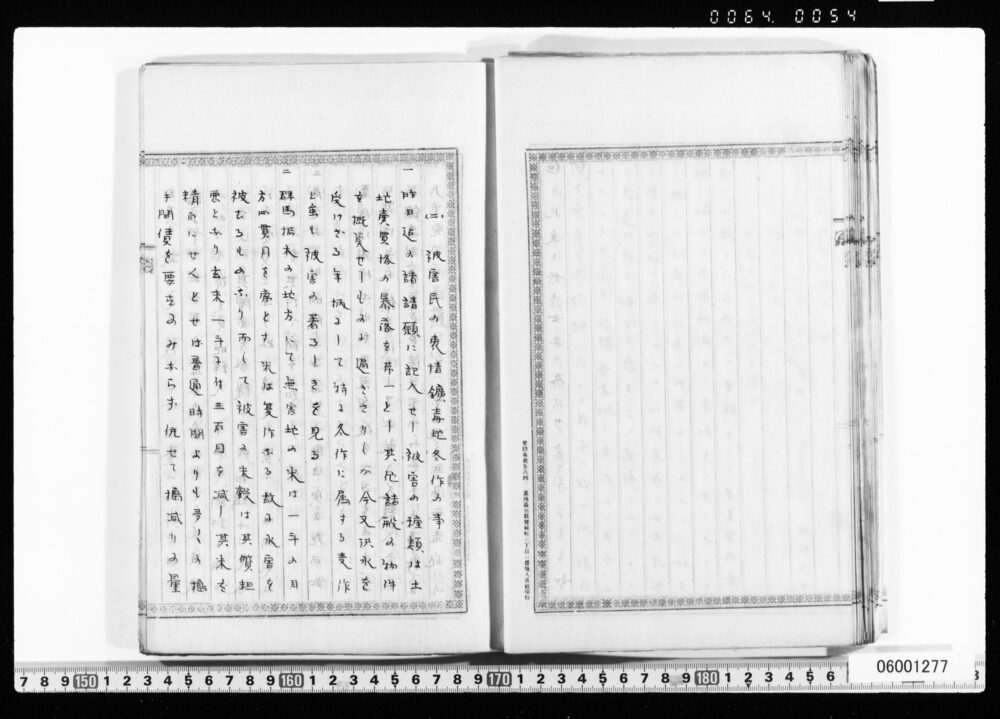 0064. 0054
(二)被害民の衷情鑛毒地冬作の事
一 昨日迄の諸請願に記入せし被害の種類は土
地賣買格の暴落を第一とし其他諸般の物件
を概算せしものに過ぎざりしが今又洪水を
受けざる年柄にして特に冬作に属する麦作
と雖も被害の著るしきを見る
二 群馬栃木の地方にて無害地の米は一斗の目
方四貫目を常とす米は夏作なる故に水害を
被るものなり而して被害の米穀は其質粗
悪となり玄米一斗に付三百目を減し其米を
精白にせんとせは普通時間よりも多くの搗
手間債を要するのみならず併せて搗減りの量
7 8 9 150 1 2 3 4 5 6 7 8 9 160 1 2 3 4 5 6 7 8 9 170 1 2 3 4 5 6 7 8 9 180 1 2 3 4 5 6
06001277